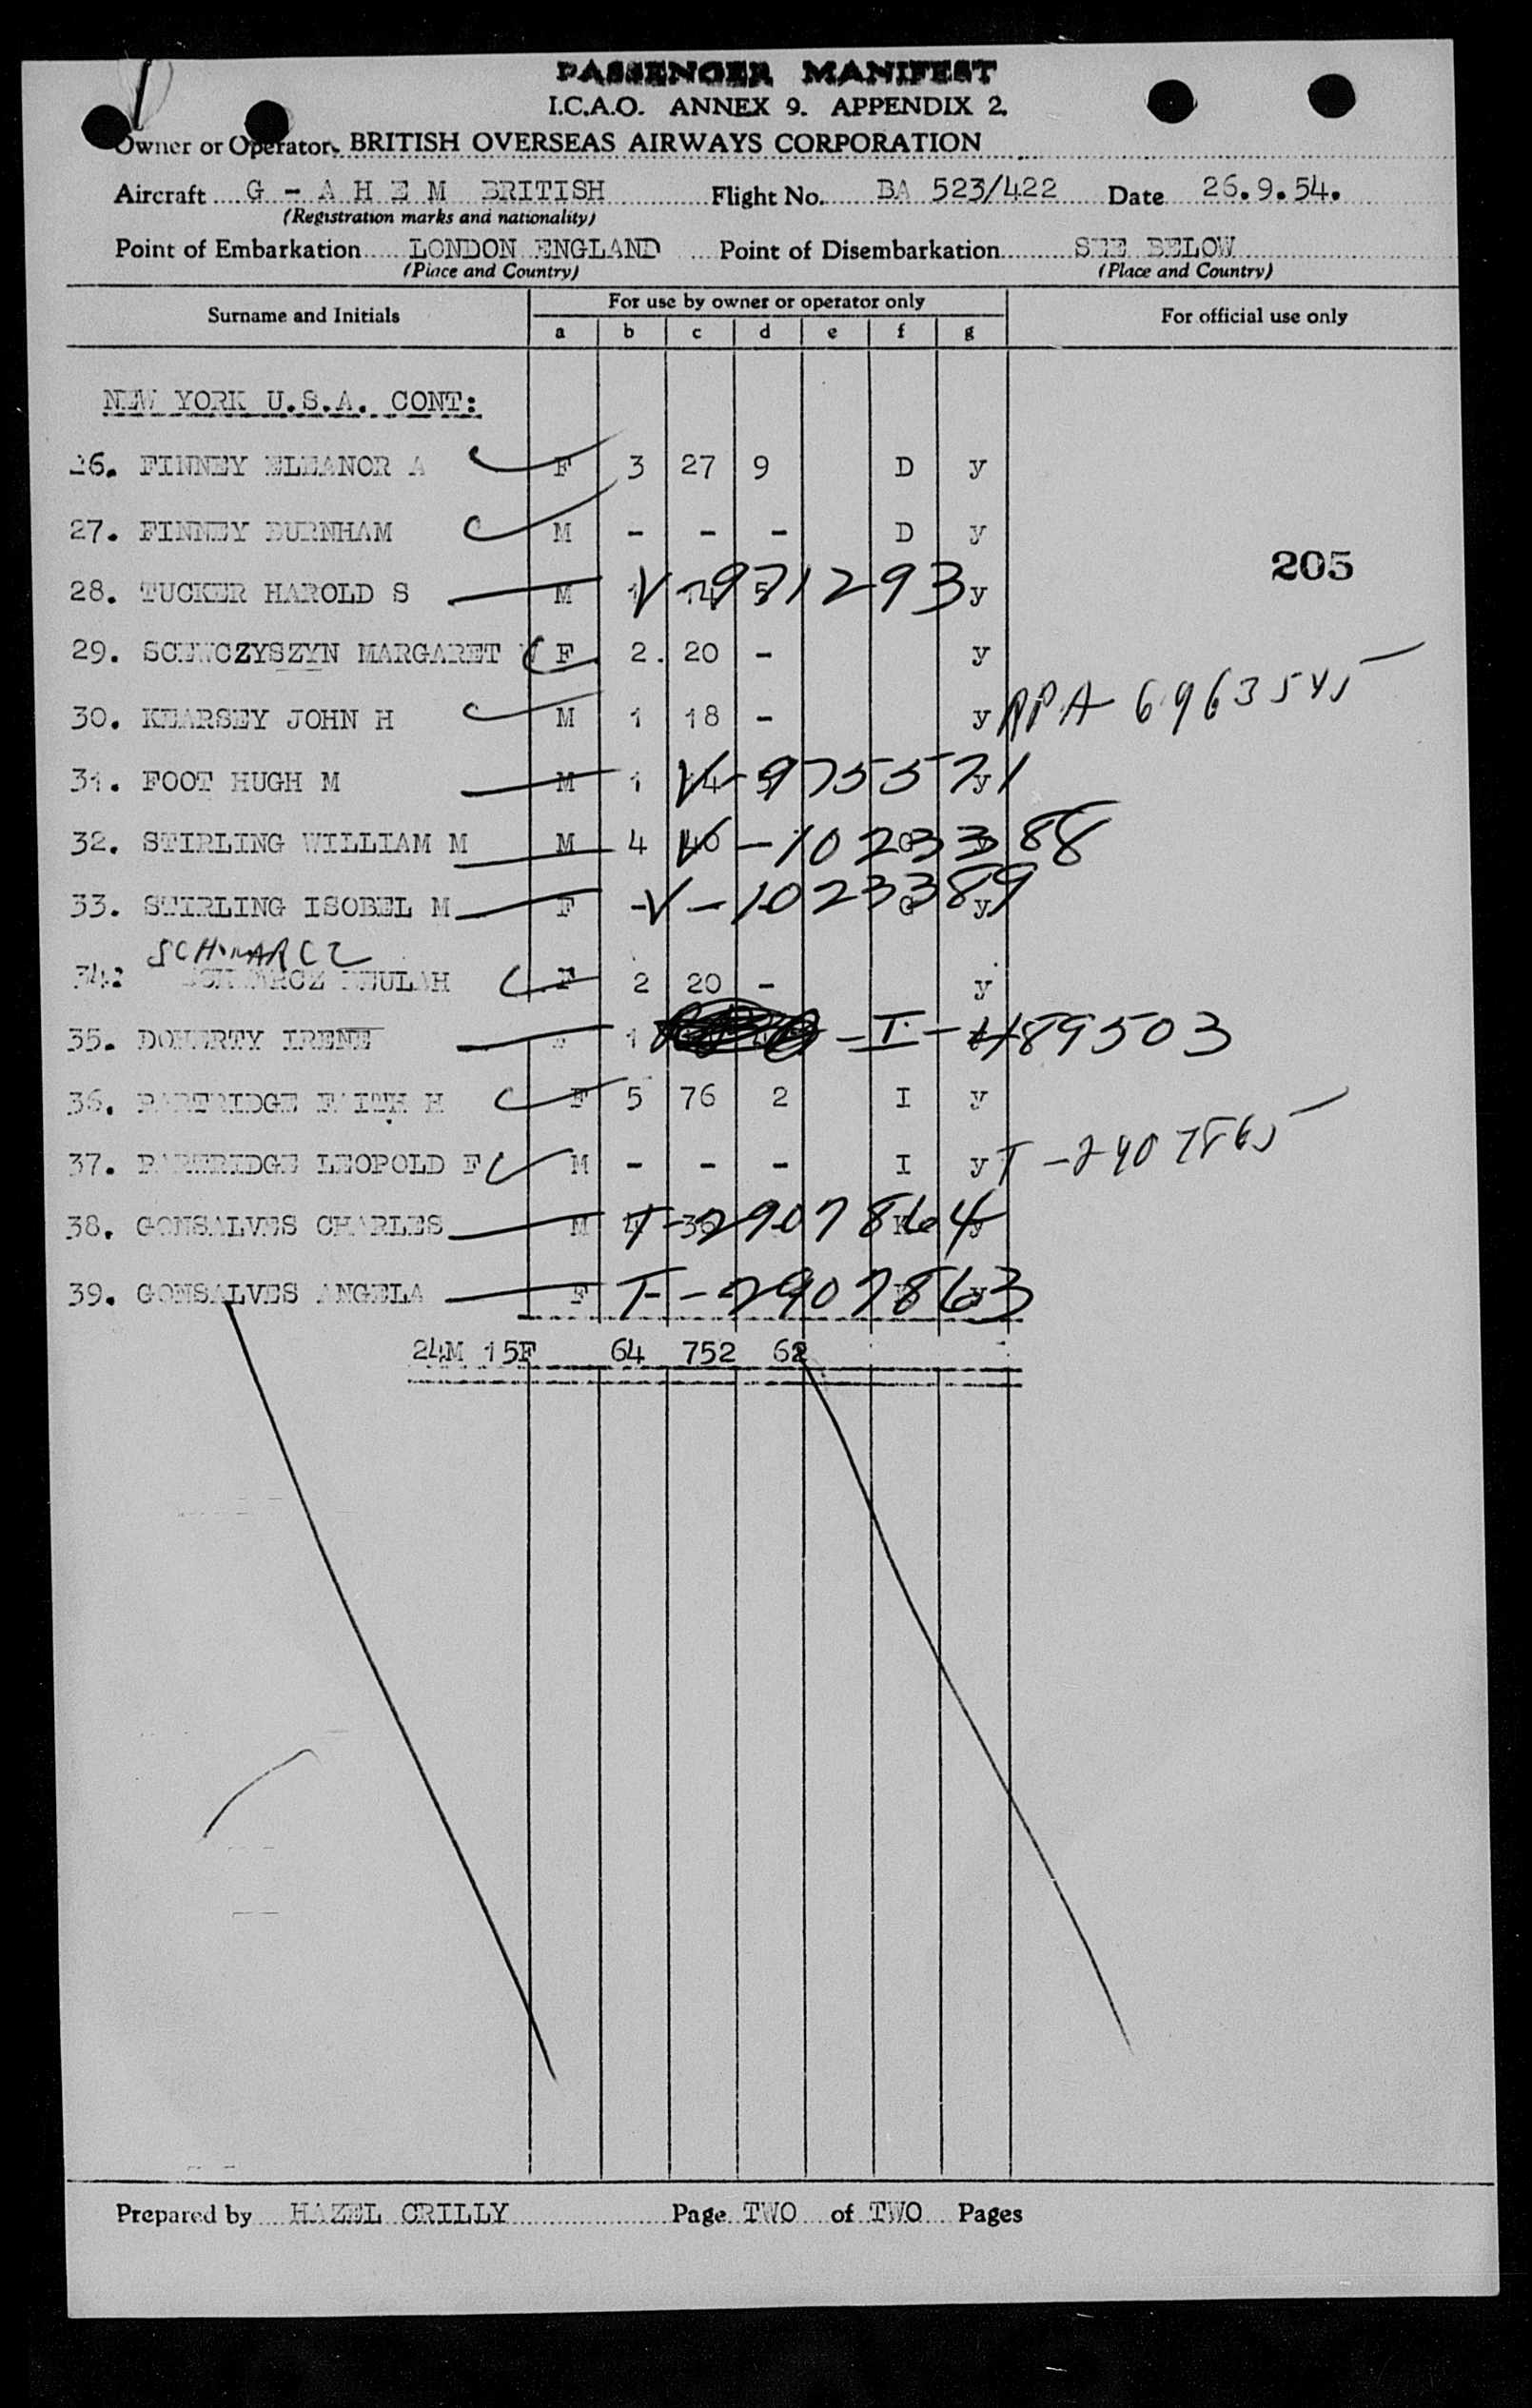 PASSENGER MANIFEST
I.C.A.O. ANNEX 9. APPENDIX 2.
Owner or Operator. BRITISH OVERSEAS AIRWAYS CORPORATION
Aircraft G - A H E M BRITISH Flight No. BA 523/422 Date 26.9.54.
(Registration marks and nationality)
Point of Embarkation LONDON ENGLAND Point of Disembarkation SEE BELOW
(Place and Country) (Place and Country)
Surname and Initials For use by owner or operator only For official use only
a b c d e f g
NEW YORK U.S.A. CONT:
26. FINNEY ELEANOR A F 3 27 9 D y
27. FINNEY BURNHAM M - - - D y
205
28. TUCKER HAROLD S M 1 V-971293 y
29. SCEWCZYSZYN MARGARET F 2. 20 - y
30. KEARSEY JOHN H M 1 18 - y APA 6963545
31. FOOT HUGH M M 1 V-9755571 y
32. STIRLING WILLIAM M M 4 V-1023388
33. STIRLING ISOBEL M F - V-1023389 y
SCHWARCZ
34. SCHWARCZ BEULAH F 2 20 - y
35. DOHERTY IRENE F 1 - I - 489503
36. PARTRIDGE FAITH H F 5 76 2 I y
37. PARTRIDGE LEOPOLD F M - - - I y T-2907865
38. GONSALVES CHARLES M T-2907864
39. GONSALVES ANGELA F T-2907863
24M 15F 64 752 62
Prepared by HAZEL CRILLY Page TWO of TWO Pages